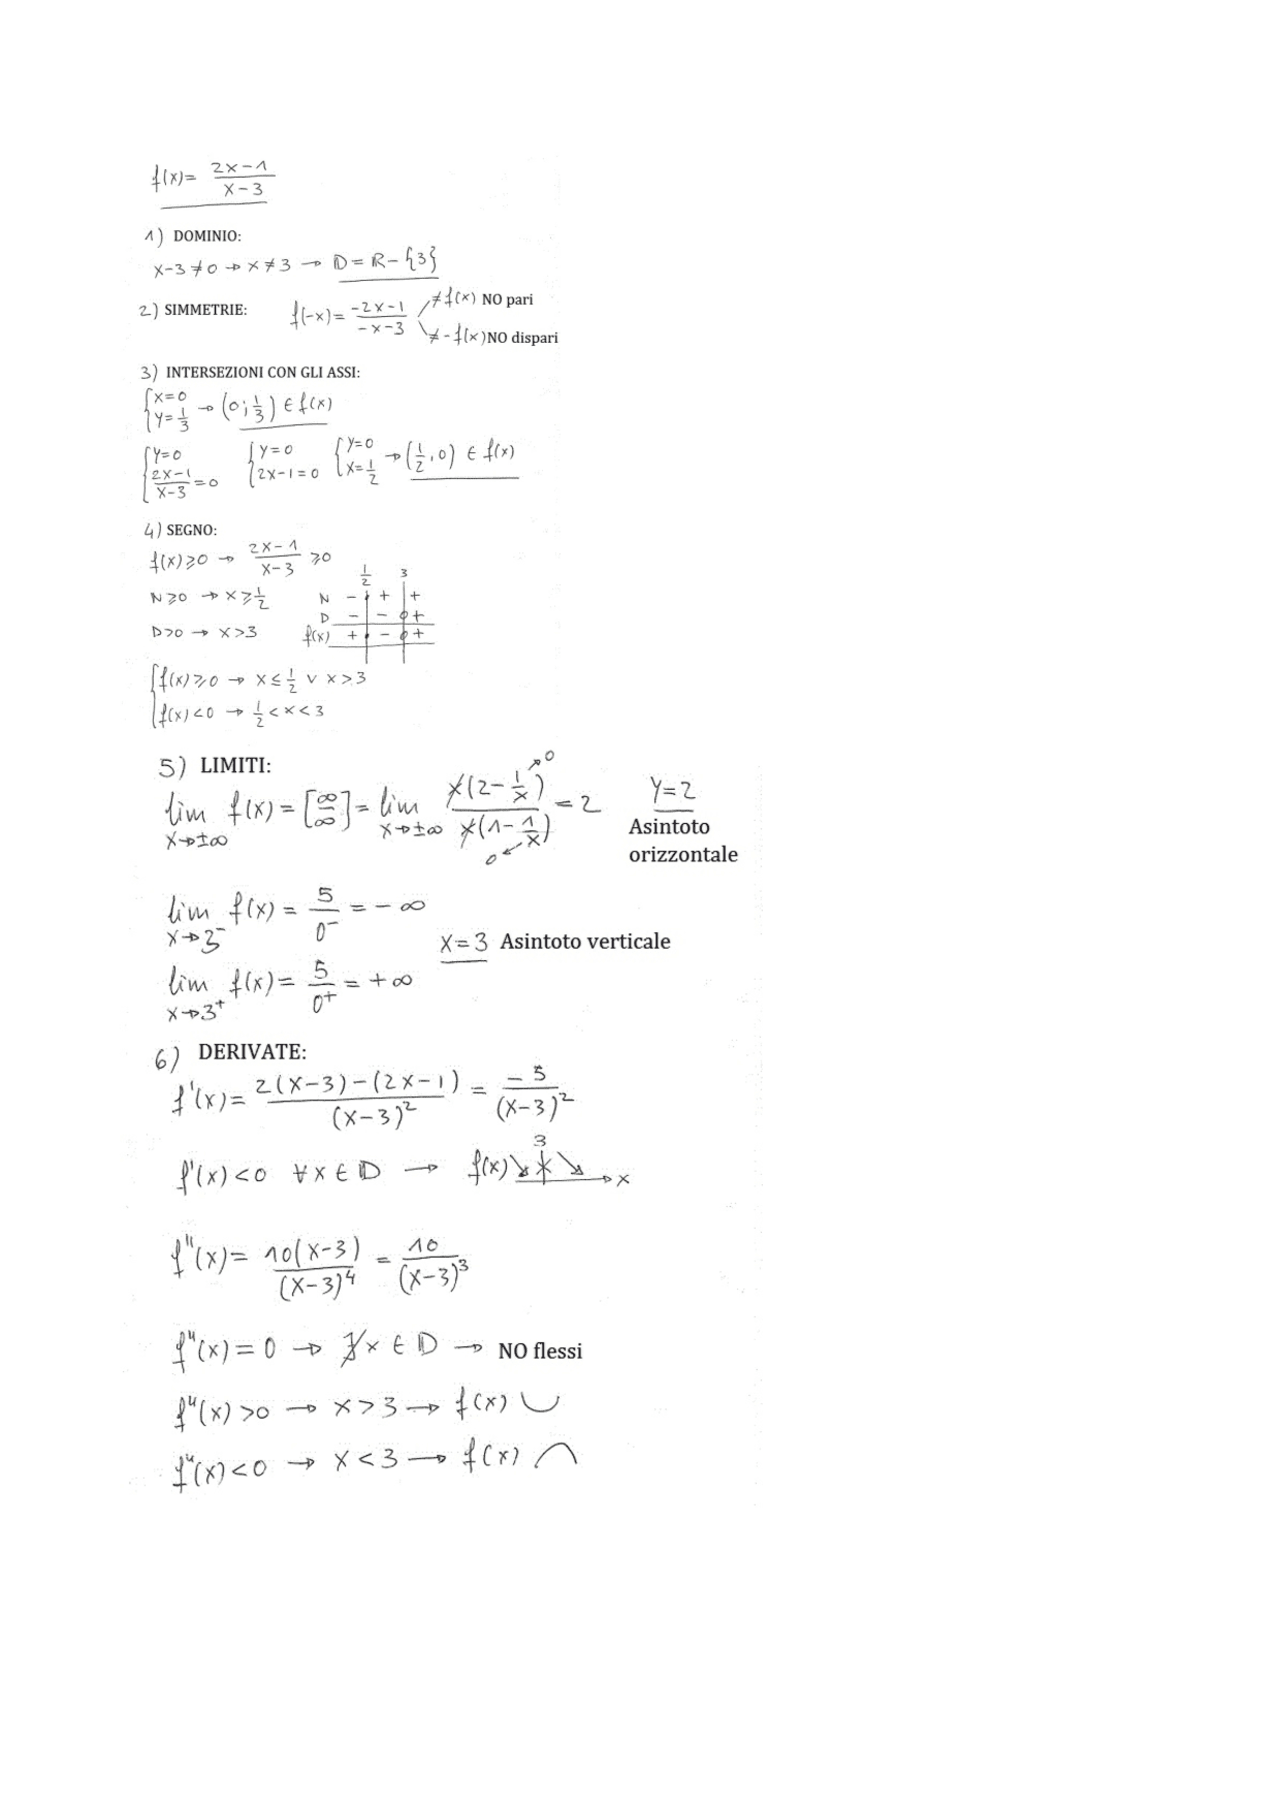 f(x)= (2x-1)/(x-3)
1) DOMINIO:
x-3≠0 → x≠3 → D=R-{3}
2) SIMMETRIE: f(-x)= (-2x-1)/(-x-3) ≠f(x) NO pari
≠-f(x) NO dispari
3) INTERSEZIONI CON GLI ASSI:
{x=0 {y=1/3 → (0;1/3) ∈ f(x)
{y=0 {(2x-1)/(x-3)=0 {y=0 {2x-1=0 {y=0 {x=1/2 → (1/2,0) ∈ f(x)
4) SEGNO:
f(x)≥0 → (2x-1)/(x-3) ≥0
1/2 3
N≥0 → x≥1/2 N - + +
D - - +
D>0 → x>3 f(x) + - +
{f(x)≥0 → x≤1/2 ∨ x>3
{f(x)<0 → 1/2<x<3
5) LIMITI:
lim x→±∞ f(x) = [∞/∞] = lim x→±∞ x(2-1/x)/x(1-1/x) = 2 y=2
0
0
Asintoto
orizzontale
lim x→3⁻ f(x) = 5/0⁻ = -∞
x=3 Asintoto verticale
lim x→3⁺ f(x) = 5/0⁺ = +∞
6) DERIVATE:
f'(x)= (2(x-3)-(2x-1))/(x-3)² = -5/(x-3)²
3
f'(x)<0 ∀x∈D → f(x) ↘ ↘ x
f"(x)= 10(x-3)/(x-3)⁴ = 10/(x-3)³
f"(x)=0 → ∄x∈D → NO flessi
f"(x)>0 → x>3 → f(x) ∪
f"(x)<0 → x<3 → f(x) ∩